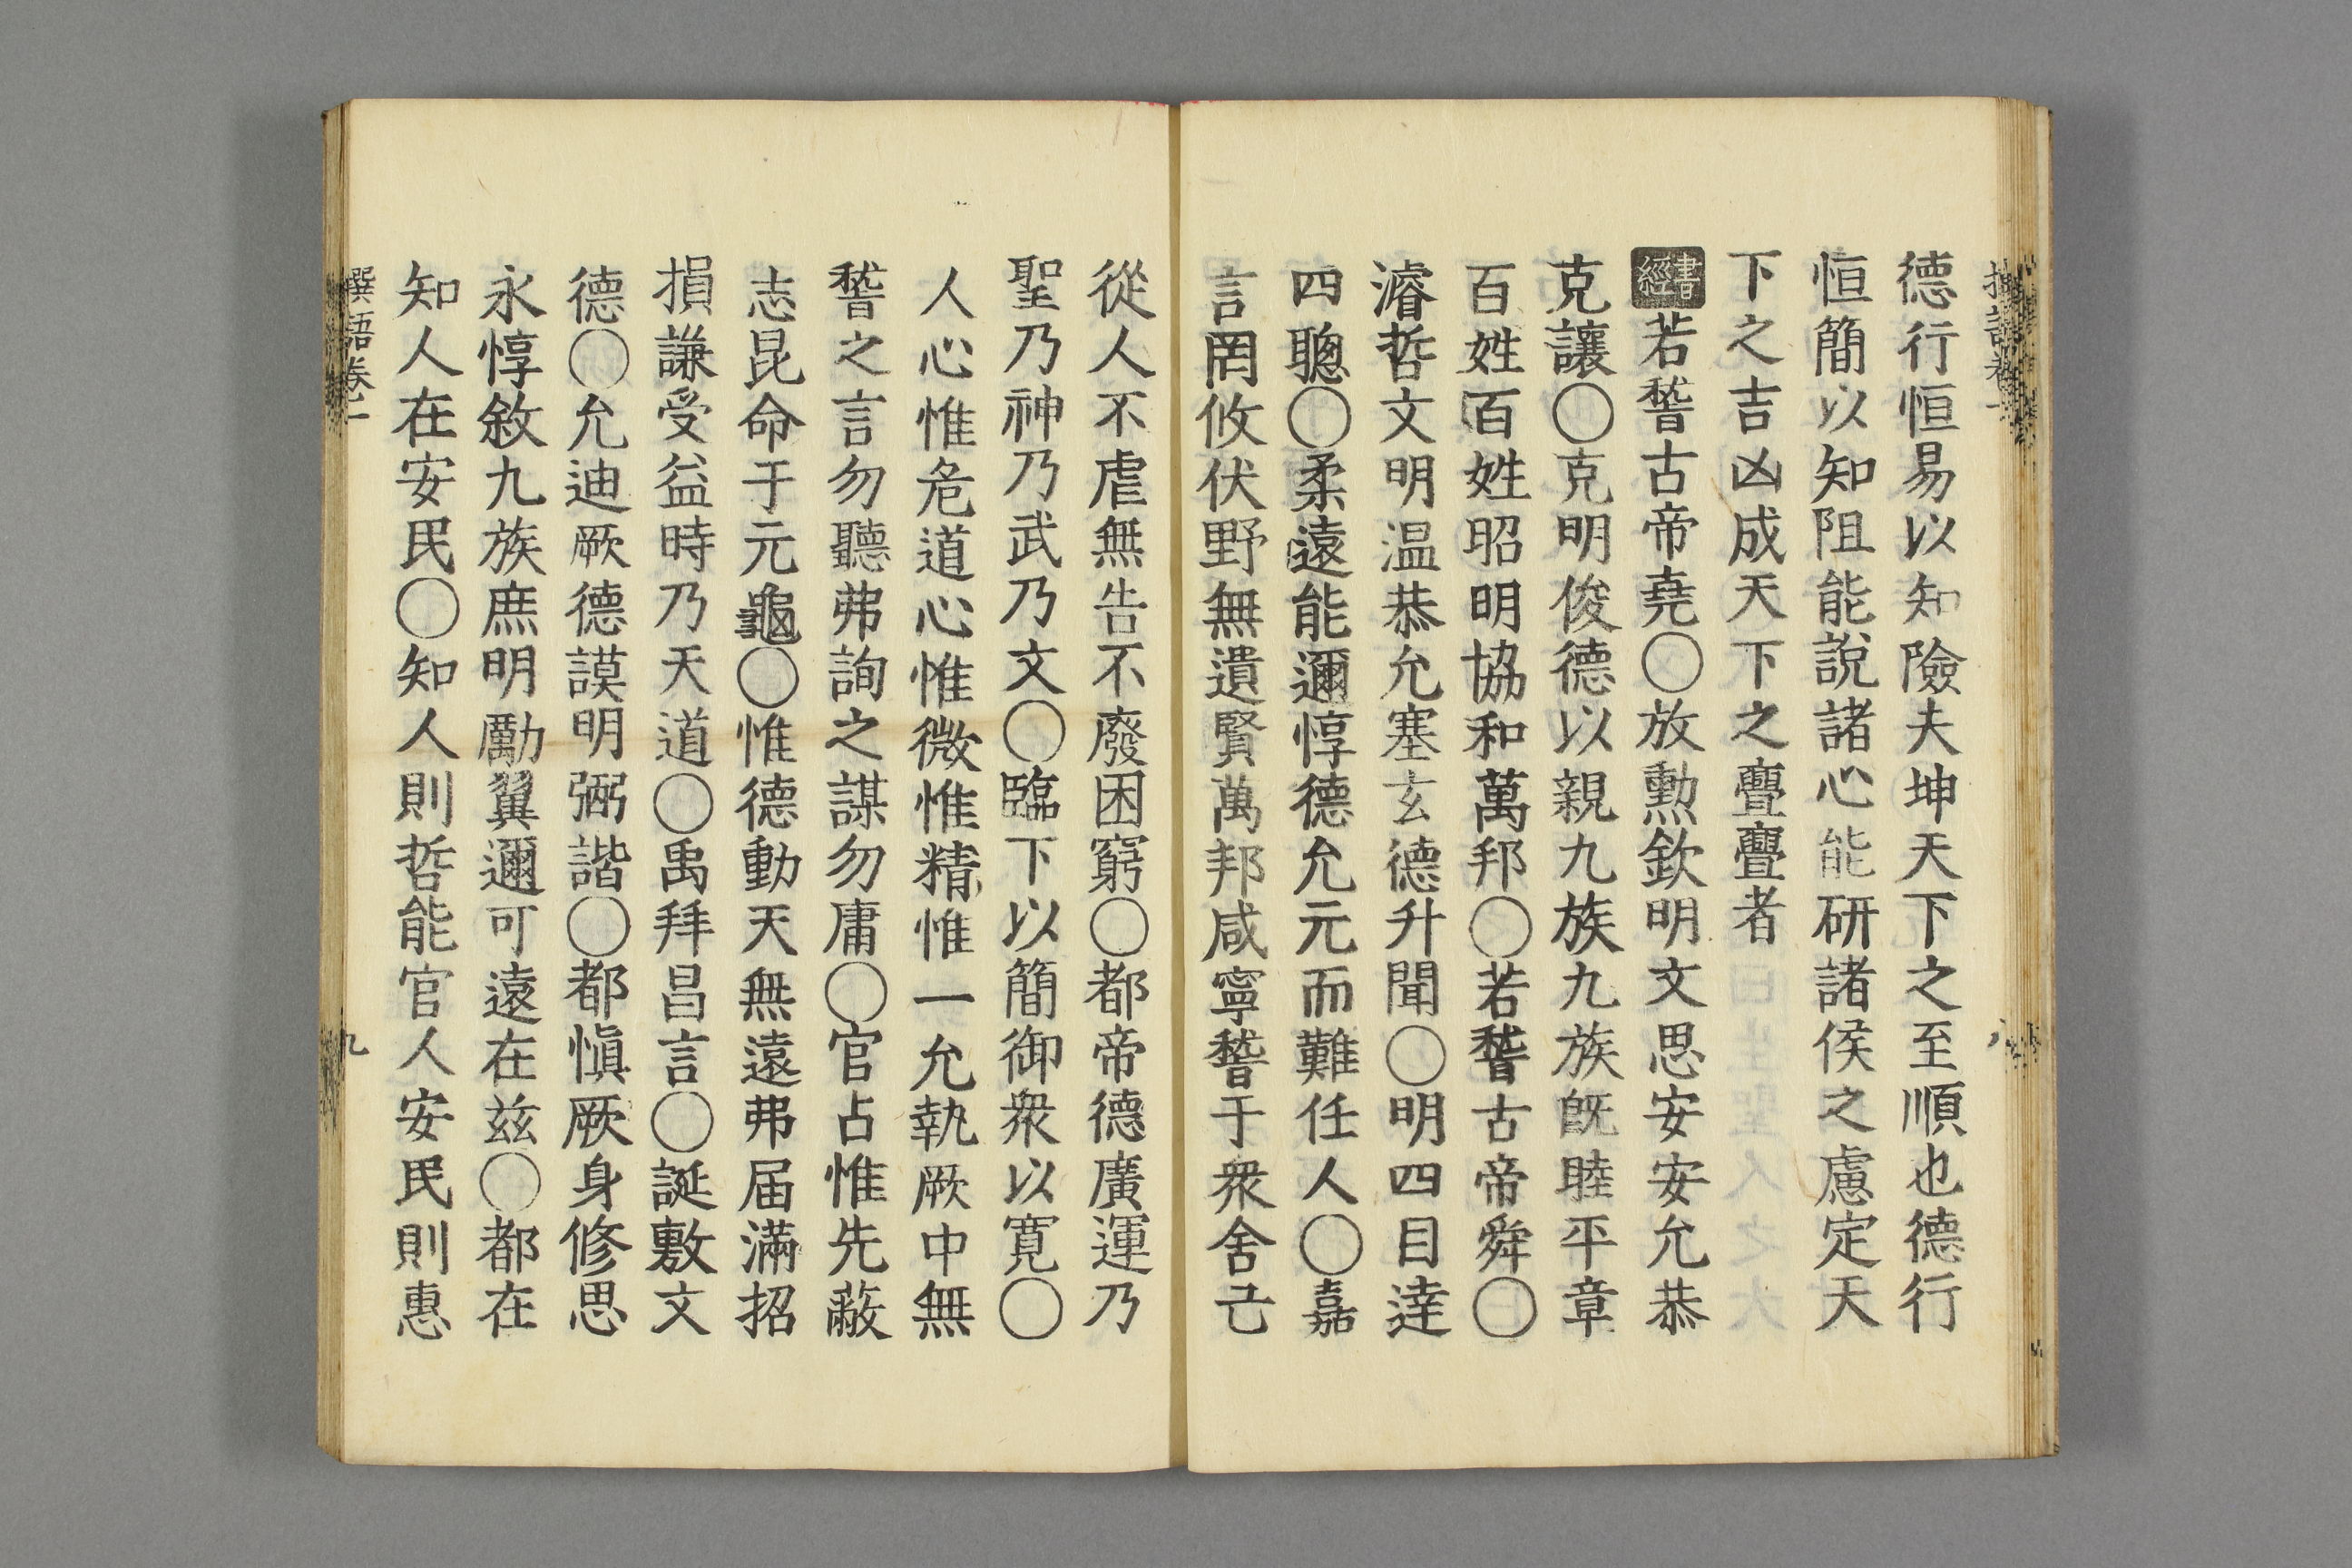 德行恒易以知險夫坤天下之至順也德行
恒簡以知阻能說諸心能研諸侯之慮定天
下之吉凶成天下之亹亹者
書經若稽古帝堯○放勳欽明文思安安允恭
克讓○克明俊德以親九族九族旣睦平章
百姓百姓昭明協和萬邦○若稽古帝舜○
濬哲文明温恭允塞玄德升聞○明四目達
四聰○柔遠能邇惇德允元而難任人○嘉
言罔攸伏野無遺賢萬邦咸寧稽于衆舍己
從人不虐無告不廢困窮○都帝德廣運乃
聖乃神乃武乃文○臨下以簡御衆以寬○
人心惟危道心惟微惟精惟一允執厥中無
稽之言勿聽弗詢之謀勿庸○官占惟先蔽
志昆命于元龜○惟德動天無遠弗届滿招
損謙受益時乃天道○禹拜昌言○誕敷文
德○允迪厥德謨明弼諧○都愼厥身修思
永惇敘九族庶明勵翼邇可遠在兹○都在
知人在安民○知人則哲能官人安民則惠
撰語卷一
九